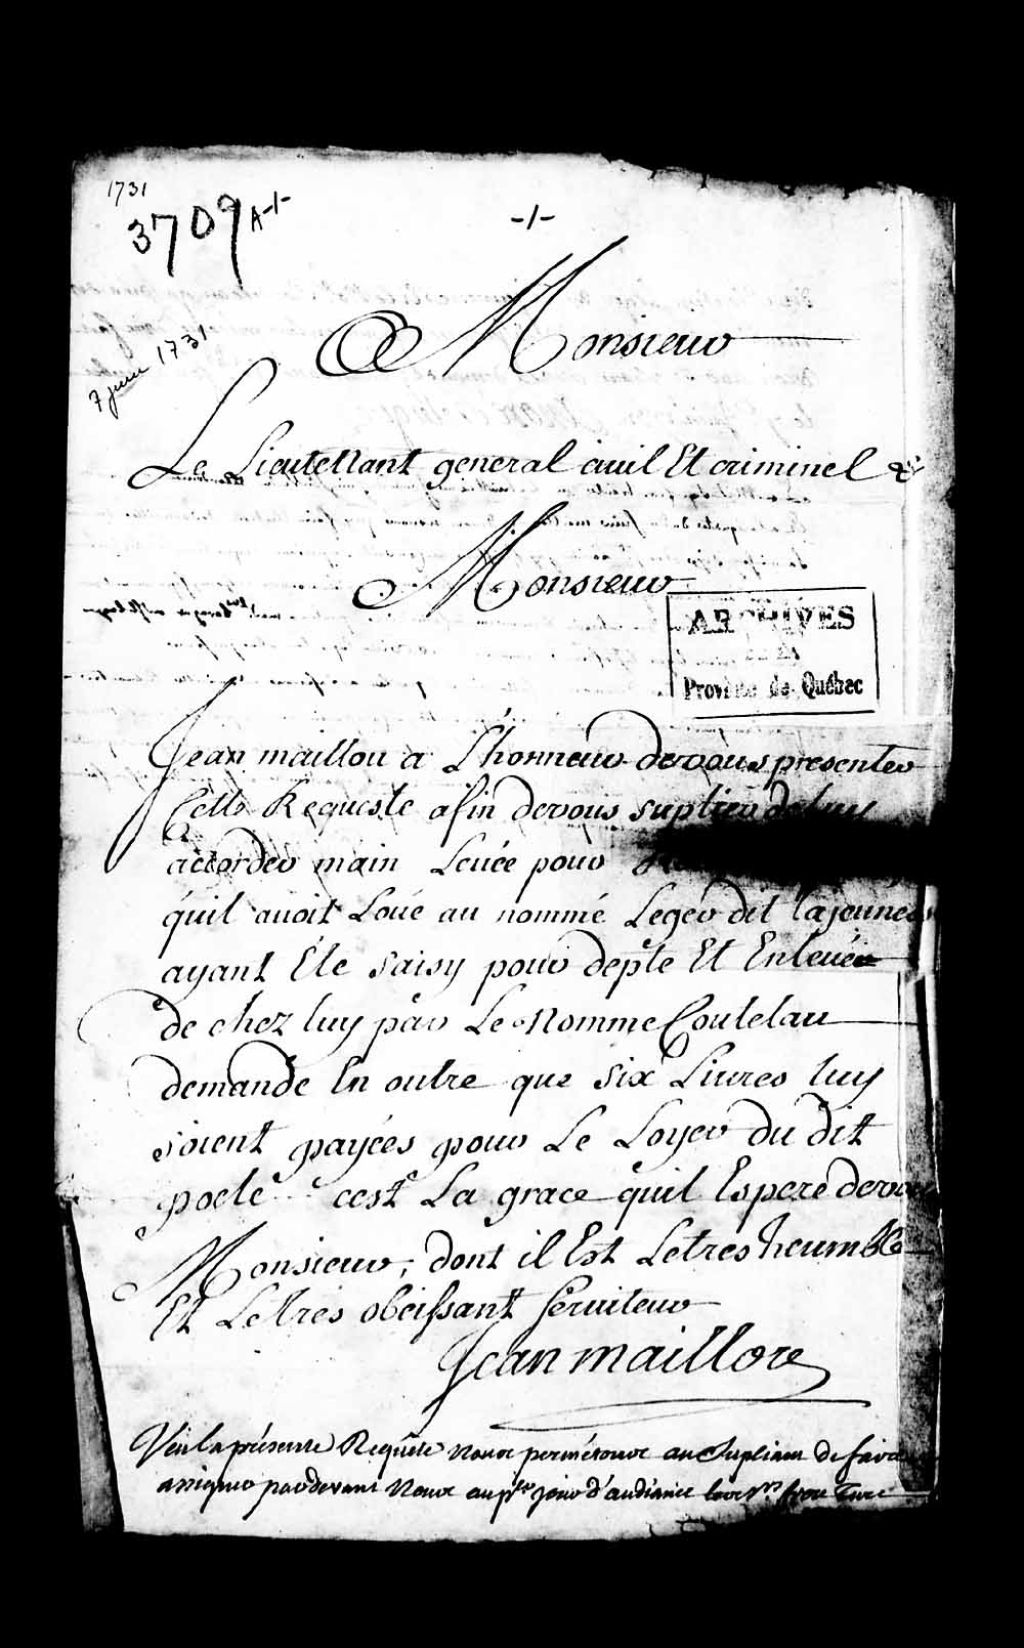 1731
3709 A-1-
-1-
7 juin 1731
A Monsieur
Le Lieutenant general ciuil Et criminel &
Monsieur
ARCHIVES
DE LA
Province de Québec
Jean maillou a L'honneur devous presenter
Cette Requeste afin devous suplier de luy
accorder main Leuée pour
quil auoit Loué au nommé Leger dit lajeunesse
ayant Éte saisy pour depte Et Enleuée
de chez luy par Le Nomme Coutelau
demande En outre que six Liures luy
soient payées pour Le Loyer du dit
poele cest La grace quil Espere devous
Monsieur, dont il Est Letres heumble
Et Letres obeissant seruiteur
Jean maillou
Veu la présente Requête nous permétons au Supliant de faire
assigner pardevant Nous au pr jour d'audiance